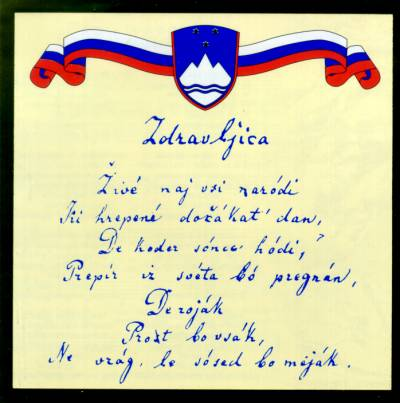 Zdravljica
Živé naj vsi naródi
Ki hrepené dočákat' dan,
De koder sónce hódi,
Prepír iz svéta bó pregnán,
De roják
Prost bo vsák,
Ne vrág, le sósed bo mèják.